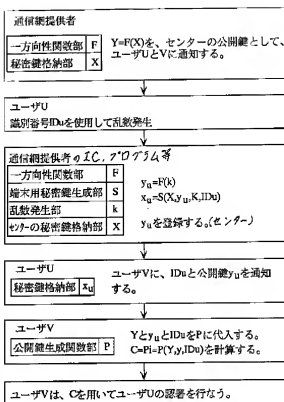 通信網提供者
一方向性関数部 F
秘密鍵格納部 X
Y=F(X)を、センターの公開鍵として、
ユーザUとVに通知する。
ユーザU
識別番号IDuを使用して乱数発生
通信網提供者のIC,プログラム等
一方向性関数部 F
端末用秘密鍵生成部 S
乱数発生部 k
センターの秘密鍵格納部 X
yu=F(k)
xu=S(X,yu,K,IDu)
yuを登録する。(センター)
ユーザU
秘密鍵格納部 xu
ユーザVに、IDuと公開鍵yuを通知
する。
ユーザV
公開鍵生成関数部 P
YとyuとIDuをPに代入する。
C=Pi=P(Y,y,IDu)を計算する。
ユーザVは、Cを用いてユーザUの認署を行なう。